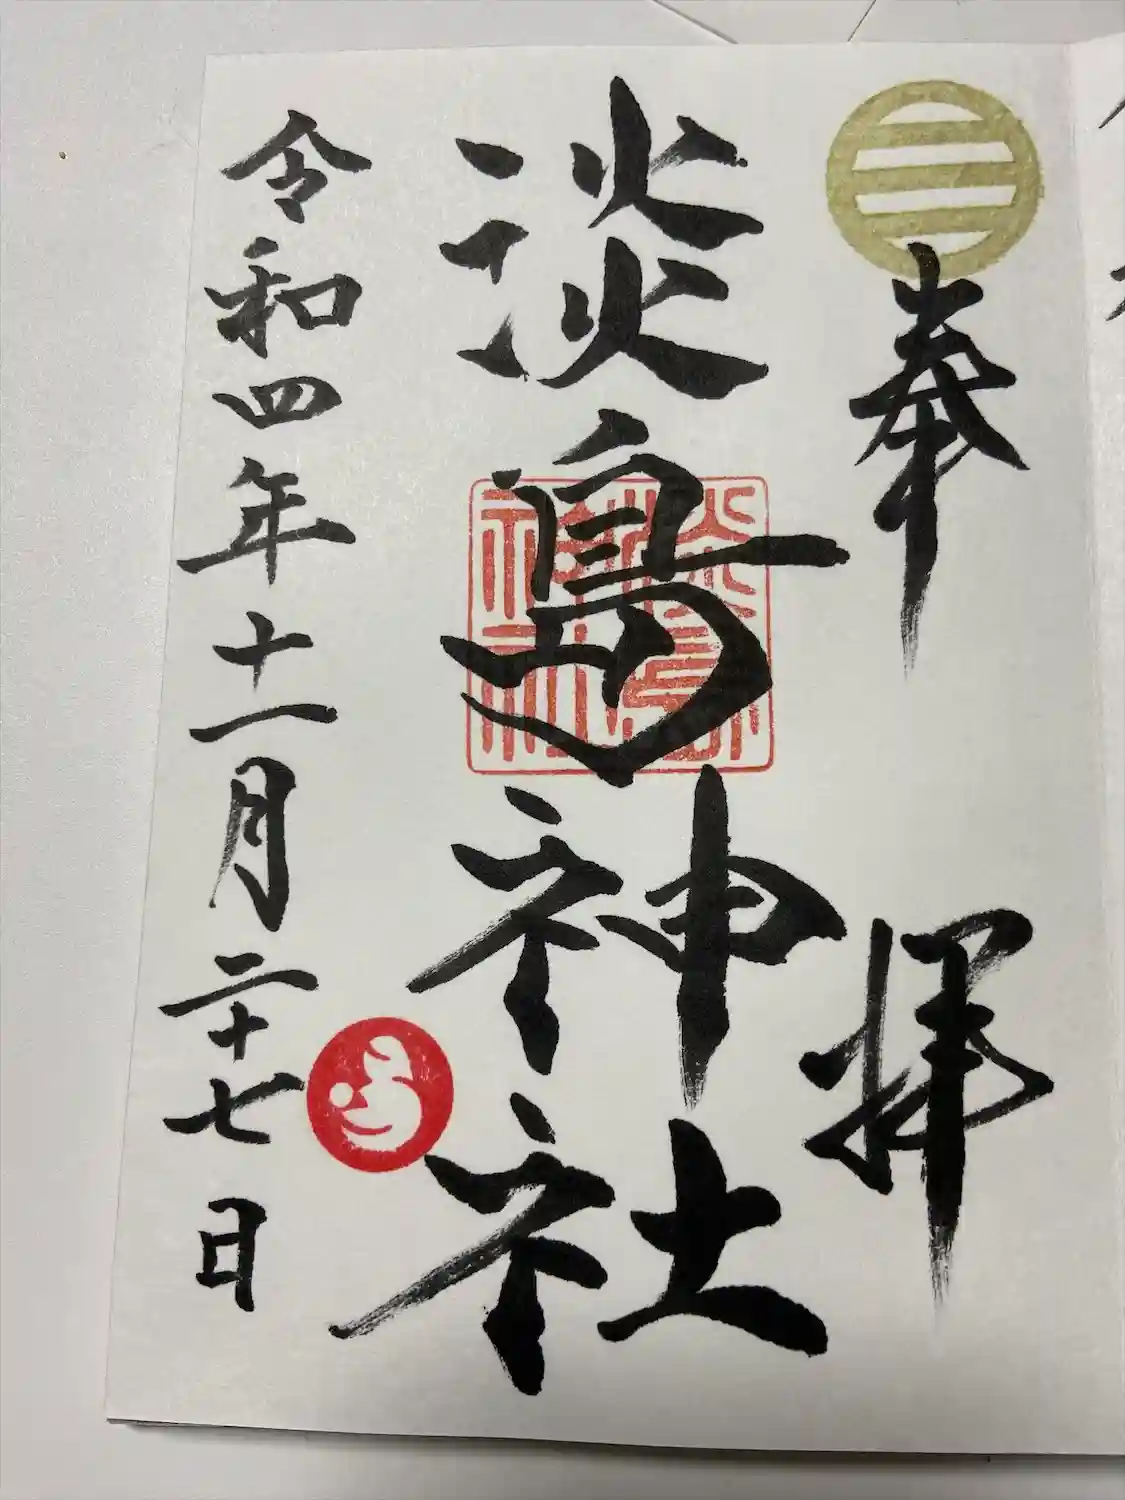 奉拝
淡島神社
令和四年十一月二十七日